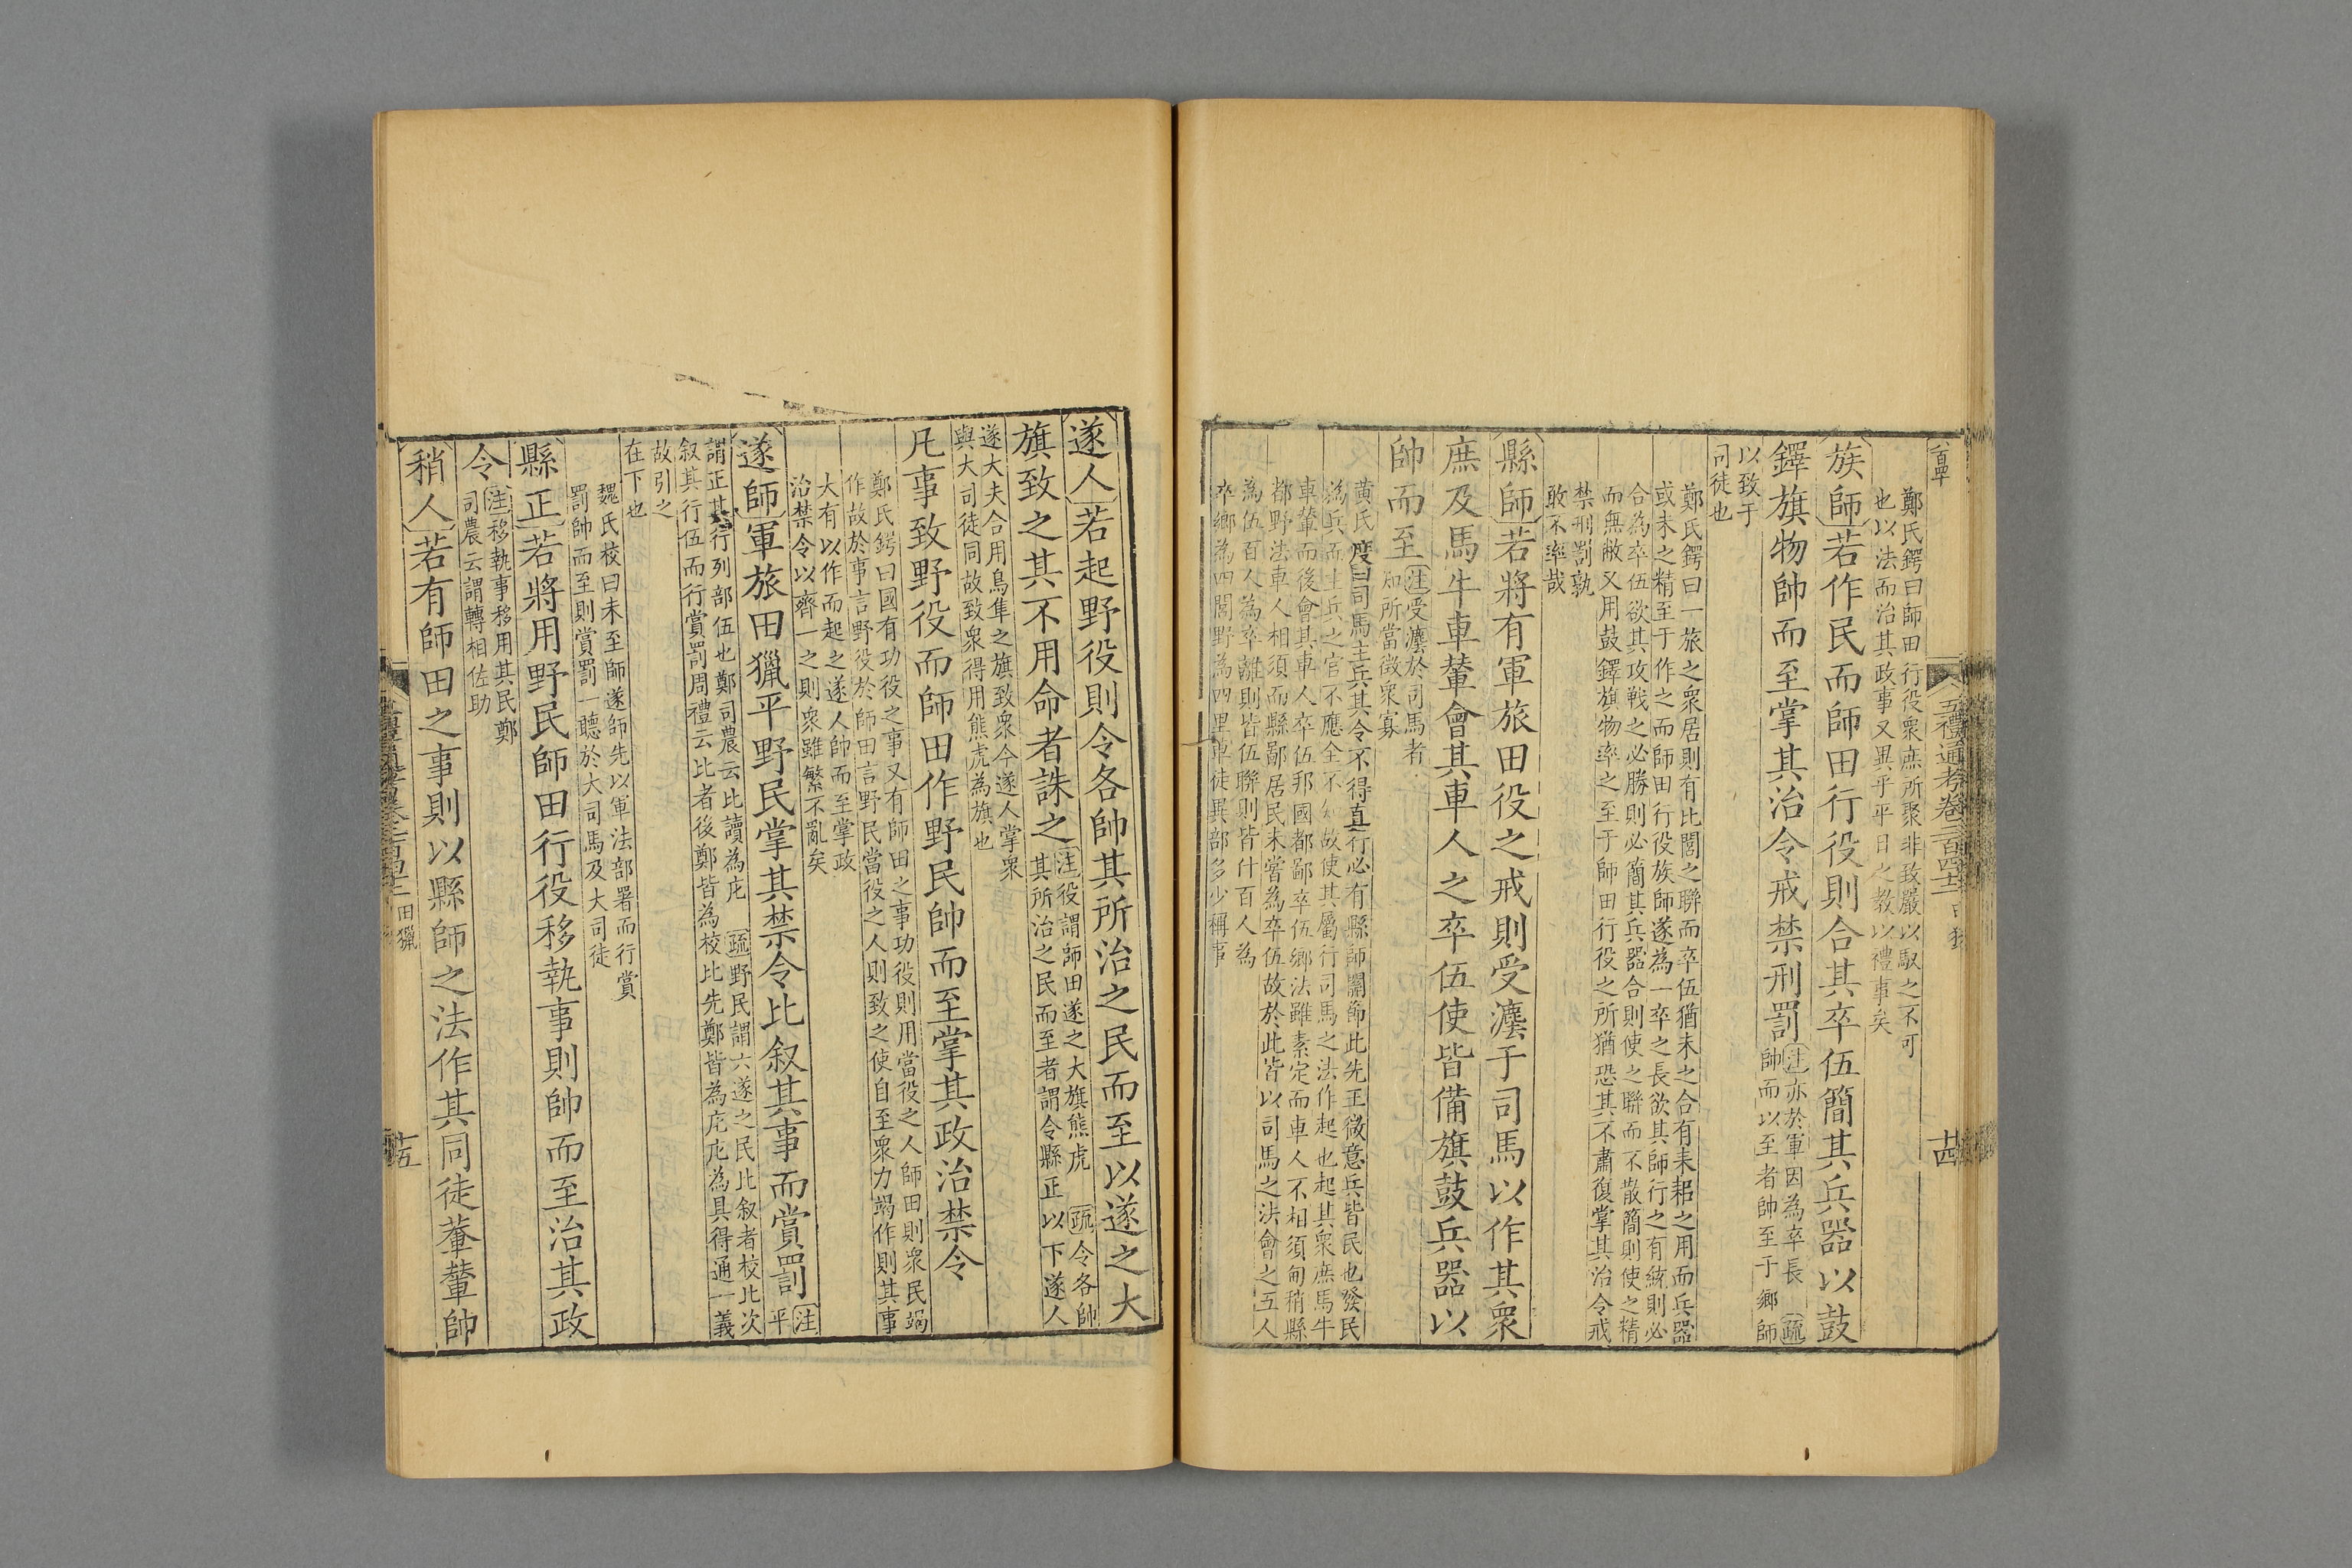 五禮通考卷二百四十二
田獵
十四
鄭氏鍔曰師田行役衆庶所聚非致嚴以馭之不可
也以法而治其政事又異乎平日之教以禮事矣
族師若作民而師田行役則合其卒伍簡其兵器以鼓
鐸旗物帥而至掌其治令戒禁刑罰注亦於軍因為卒長 疏
帥而以至者帥至于鄉師
以致于
司徒也
鄭氏鍔曰一旅之衆居則有比閭之聯而卒伍猶未之合有耒耜之用而兵器
或未之精至于作之而師田行役族師遂為一卒之長欲其師行之有統則必
合為卒伍欲其攻戰之必勝則必簡其兵器合則使之聯而不散簡則使之精
而無敝又用鼓鐸旗物率之至于師田行役之所猶恐其不肅復掌其治令戒
禁刑罰孰
敢不率哉
縣師若將有軍旅田役之戒則受灋于司馬以作其衆
庶及馬牛車輦會其車人之卒伍使皆備旗鼓兵器以
帥而至注受灋於司馬者
知所當徵衆寡
黃氏度曰司馬主兵其令不得直行必有縣師關節此先王微意兵皆民也發民
為兵而主兵之官不應全不知故使其屬行司馬之法作起也起其衆庶馬牛
車輦而後會其車人卒伍邦國都鄙卒伍鄉法雖素定而車人不相須甸稍縣
都野法車人相須而縣鄙居民未嘗為卒伍故於此皆以司馬之法會之五人
為伍百人為卒離則皆伍聯則皆什百人為
卒鄉為四閭野為四里車徒異部多少稱事
遂人若起野役則令各帥其所治之民而至以遂之大
旗致之其不用命者誅之注役謂師田遂之大旗熊虎 疏令各帥
其所治之民而至者謂令縣正以下遂人
遂大夫合用鳥隼之旗致衆今遂人掌衆
與大司徒同故致衆得用熊虎為旗也
凡事致野役而師田作野民帥而至掌其政治禁令
鄭氏鍔曰國有功役之事又有師田之事功役則用當役之人師田則衆民竭
作故於事言野役於師田言野民當役之人則致之使自至衆力竭作則其事
大有以作而起之遂人帥而至掌政
治禁令以齊一之則衆雖繁不亂矣
遂師軍旅田獵平野民掌其禁令比叙其事而賞罰注
平
謂正其行列部伍也鄭司農云比讀為庀 疏野民謂六遂之民比叙者校比次
叙其行伍而行賞罰周禮云比者後鄭皆為校比先鄭皆為庀庀為具得通一義
故引之
在下也
魏氏校曰未至師遂師先以軍法部署而行賞
罰帥而至則賞罰一聽於大司馬及大司徒
縣正若將用野民師田行役移執事則帥而至治其政
令注移執事移用其民鄭
司農云謂轉相佐助
稍人若有師田之事則以縣師之法作其同徒輂輦帥
田獵
十五